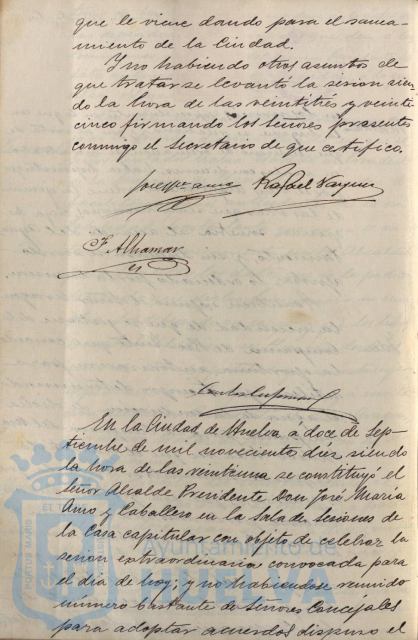 que le viene dando para el sanea-
miento de la Ciudad.
Y no habiendo otros asuntos de
que tratar se levantó la sesion sien-
do la hora de las veintitrés y veinte
cinco firmando los Señores presentes
conmigo el Secretario de que certifico.
Rafael Vazquez
F. Alhamar
En la Ciudad de Huelva á doce de Sep-
tiembre de mil novecientos diez siendo
la hora de las veintiuna se constituyó el
Señor Alcalde Presidente Don José Maria
Amo y Caballero en la Sala de Sesiones de
la Casa capitular con objeto de celebrar la
sesion extraordinaria convocada para
el dia de hoy; y no habiendose reunido
número bastante de Señores Concejales
para adoptar acuerdos dispuso el
Ayuntamiento de
PORTUS MARIS